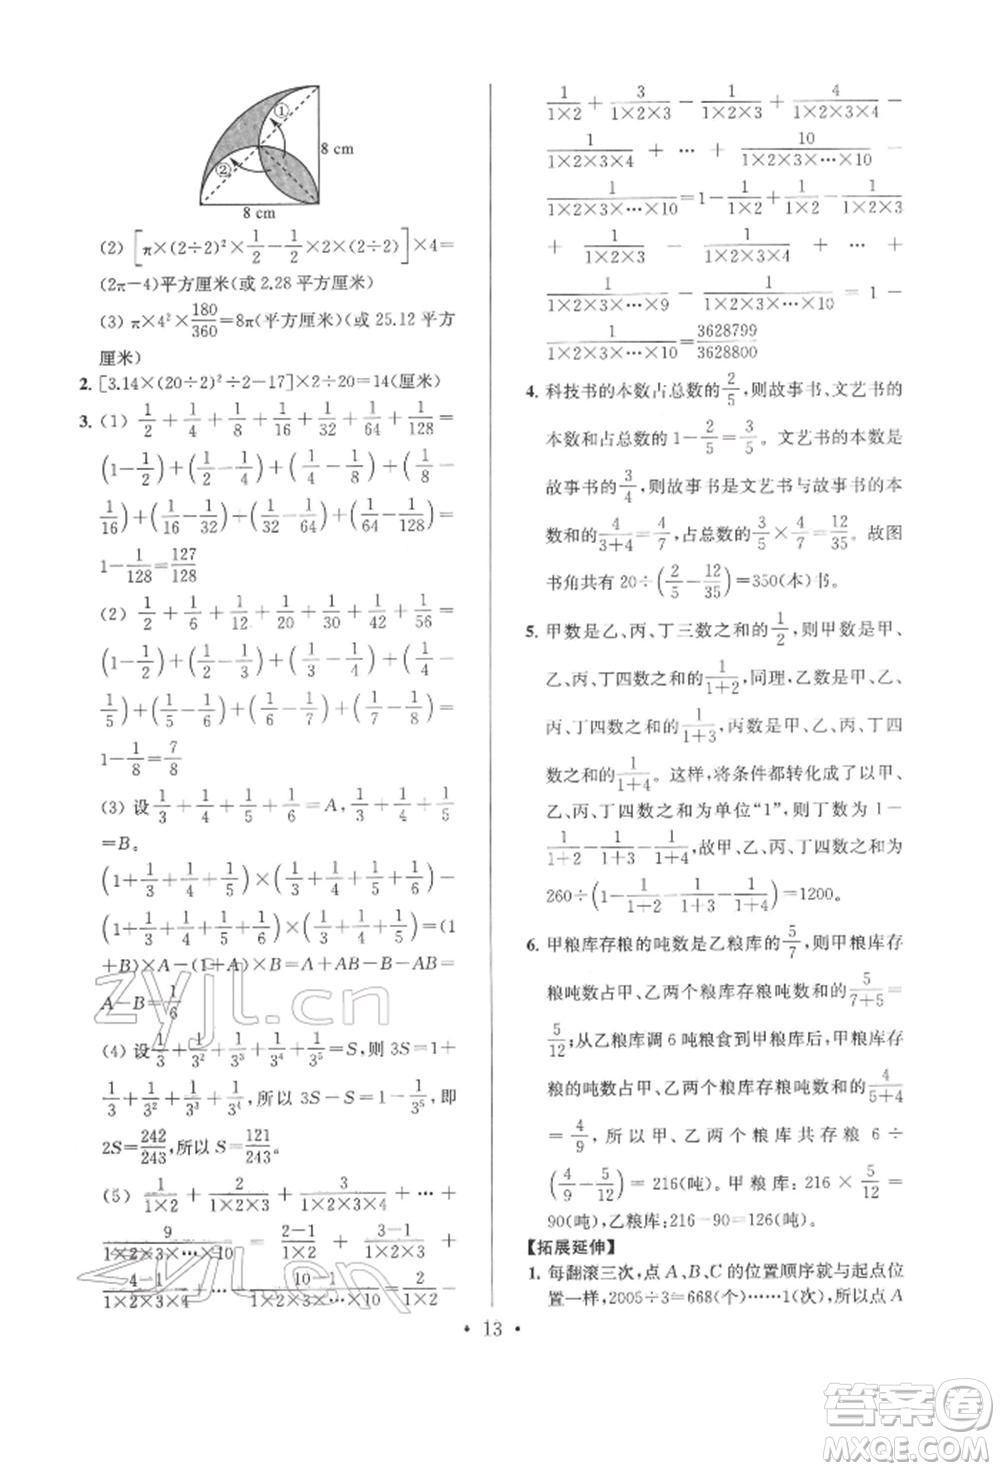 ①
②
8 cm
8 cm
(2) [π×(2÷2)²×1/2-1/2×2×(2÷2)]×4=
(2π-4)平方厘米(或 2.28 平方厘米)
(3) π×4²×180/360=8π(平方厘米)(或 25.12 平方
厘米)
2. [3.14×(20÷2)²÷2-17]×2÷20=14(厘米)
3. (1) 1/2+1/4+1/8+1/16+1/32+1/64+1/128=
(1-1/2)+(1/2-1/4)+(1/4-1/8)+(1/8-
1/16)+(1/16-1/32)+(1/32-1/64)+(1/64-1/128)=
1-1/128=127/128
(2) 1/2+1/6+1/12+1/20+1/30+1/42+1/56=
(1-1/2)+(1/2-1/3)+(1/3-1/4)+(1/4-
1/5)+(1/5-1/6)+(1/6-1/7)+(1/7-1/8)=
1-1/8=7/8
(3) 设1/3+1/4+1/5+1/6=A,1/3+1/4+1/5
=B。
(1+1/3+1/4+1/5)×(1/3+1/4+1/5+1/6)-
(1+1/3+1/4+1/5+1/6)×(1/3+1/4+1/5)=(1
+B)×A-(1+A)×B=A+AB-B-AB=
A-B=1/6
(4) 设1/3+1/3²+1/3³+1/3⁴+1/3⁵=S,则 3S=1+
1/3+1/3²+1/3³+1/3⁴,所以 3S-S=1-1/3⁵,即
2S=242/243,所以 S=121/243。
(5) 1/(1×2)+2/(1×2×3)+3/(1×2×3×4)+⋯+
9/(1×2×3×⋯×10)=(2-1)/(1×2)+(3-1)/(1×2×3)+
(4-1)/(1×2×3×4)+⋯+(10-1)/(1×2×3×⋯×10)=1/(1×2)-
1/(1×2)+3/(1×2×3)-1/(1×2×3)+4/(1×2×3×4)-
1/(1×2×3×4)+⋯+10/(1×2×3×⋯×10)-
1/(1×2×3×⋯×10)=1-1/(1×2)+1/(1×2)-1/(1×2×3)
+1/(1×2×3)-1/(1×2×3×4)+⋯+
1/(1×2×3×⋯×9)-1/(1×2×3×⋯×10)=1-
1/(1×2×3×⋯×10)=3628799/3628800
4. 科技书的本数占总数的2/5,则故事书、文艺书的
本数和占总数的1-2/5=3/5。文艺书的本数是
故事书的3/4,则故事书是文艺书与故事书的本
数和的4/(3+4)=4/7,占总数的3/5×4/7=12/35。故图
书角共有 20÷(2/5-12/35)=350(本)书。
5. 甲数是乙、丙、丁三数之和的1/2,则甲数是甲、
乙、丙、丁四数之和的1/(1+2),同理,乙数是甲、乙、
丙、丁四数之和的1/(1+3),丙数是甲、乙、丙、丁四
数之和的1/(1+4)。这样,将条件都转化成了以甲、
乙、丙、丁四数之和为单位“1”,则丁数为 1-
1/(1+2)-1/(1+3)-1/(1+4),故甲、乙、丙、丁四数之和是
260÷(1-1/(1+2)-1/(1+3)-1/(1+4))=1200。
6. 甲粮库存粮的吨数是乙粮库的5/7,则甲粮库存
粮吨数占甲、乙两个粮库存粮吨数和的5/(7+5)=
5/12;从乙粮库调 6 吨粮食到甲粮库后,甲粮库存
粮的吨数占甲、乙两个粮库存粮吨数和的4/(5+4)
=4/9,所以甲、乙两个粮库共存粮 6÷
(4/9-5/12)=216(吨)。甲粮库:216×5/12=
90(吨),乙粮库:216-90=126(吨)。
【拓展延伸】
1. 每翻滚三次,点 A、B、C 的位置顺序就与起点位
置一样,2005÷3=668(个)……1(次),所以点 A
• 13 •
zyjl.cn
zyjl.cn
答案圈
MXQE.COM